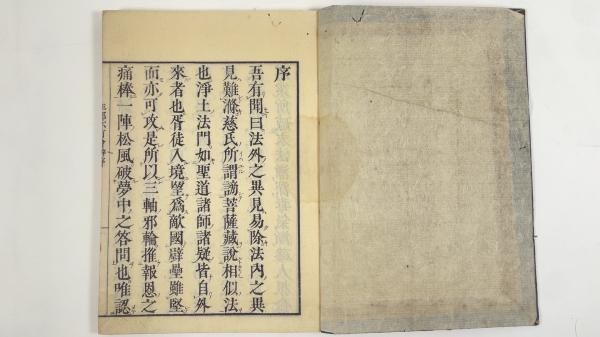 序
吾有聞曰法外之異見易除法内之異
見難滌慈氏所謂謗菩薩藏說相似法
也淨土法門如聖道諸師諸疑皆自外
來者也胥徒入境望爲敵國壁壘雖堅
而亦可攻是所以三軸邪輪摧報恩之
痛棒一陣松風破夢中之答問也唯認